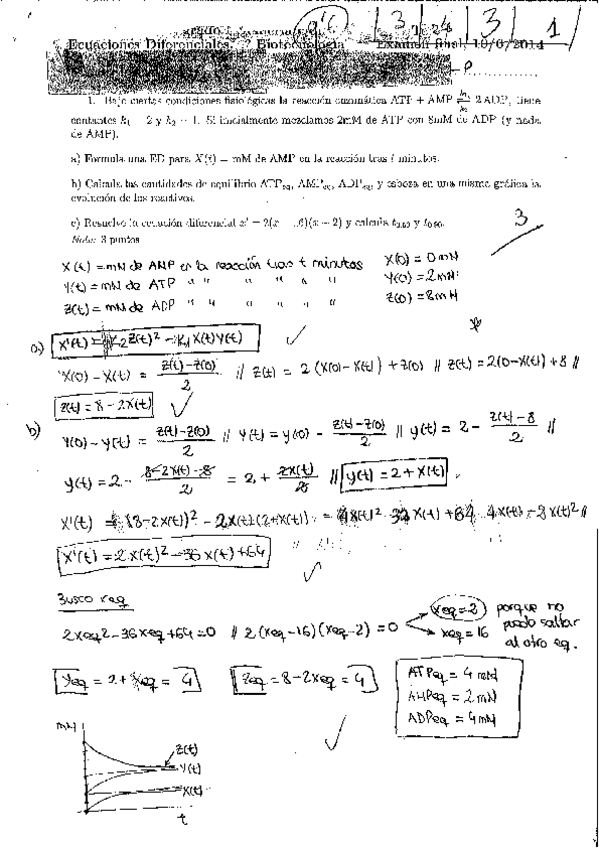 3 | 3 | 1
Ecuaciones Diferenciales, Biotecnología — Examen final, 19/6/2014
1. Bajo ciertas condiciones fisiológicas la reacción enzimática ATP + AMP ⇌ 2 ADP, tiene
constantes k₁ = 2 y k₂ = 1. Si inicialmente mezclamos 2mM de ATP con 8mM de ADP (y nada
de AMP).
a) Formula una ED para X(t) = mM de AMP en la reacción tras t minutos.
b) Calcula las cantidades de equilibrio ATPeq, AMPeq, ADPeq, y esboza en una misma gráfica la
evolución de los reactivos.
c) Resuelve la ecuación diferencial x' = 2(x − 16)(x − 2) y calcula
Nota: 3 puntos
3
X(t) = mM de AMP en la reacción tras t minutos X(0) = 0mM
Y(t) = mM de ATP " " " " " " Y(0) = 2mM
Z(t) = mM de ADP " " " " " " Z(0) = 8mM
a) X'(t) = K₂ Z(t)² − K₁ X(t) Y(t) ✓
X(0) − X(t) = (Z(t) − Z(0))/2 // Z(t) = 2(X(0) − X(t)) + Z(0) // Z(t) = 2(0 − X(t)) + 8 //
Z(t) = 8 − 2X(t) ✓
b) Y(0) − Y(t) = (Z(t) − Z(0))/2 // Y(t) = Y(0) − (Z(t) − Z(0))/2 // Y(t) = 2 − (Z(t) − 8)/2 //
Y(t) = 2 − (8 − 2X(t) − 8)/2 = 2 + 2X(t)/2 // Y(t) = 2 + X(t)
X'(t) = (8 − 2X(t))² − 2X(t)(2 + X(t)) = 4X(t)² − 32X(t) + 64 − 4X(t) − 2X(t)² //
X'(t) = 2X(t)² − 36X(t) + 64 ✓
Busco Xeq
2Xeq² − 36Xeq + 64 = 0 // 2(Xeq − 16)(Xeq − 2) = 0
Xeq = 2 porque no
puedo saltar
Xeq = 16 al otro eq.
Yeq = 2 + Xeq = 4 Zeq = 8 − 2Xeq = 4
ATPeq = 4 mM
AMPeq = 2 mM
ADPeq = 4 mM
✓
mM
Z(t)
Y(t)
X(t)
t